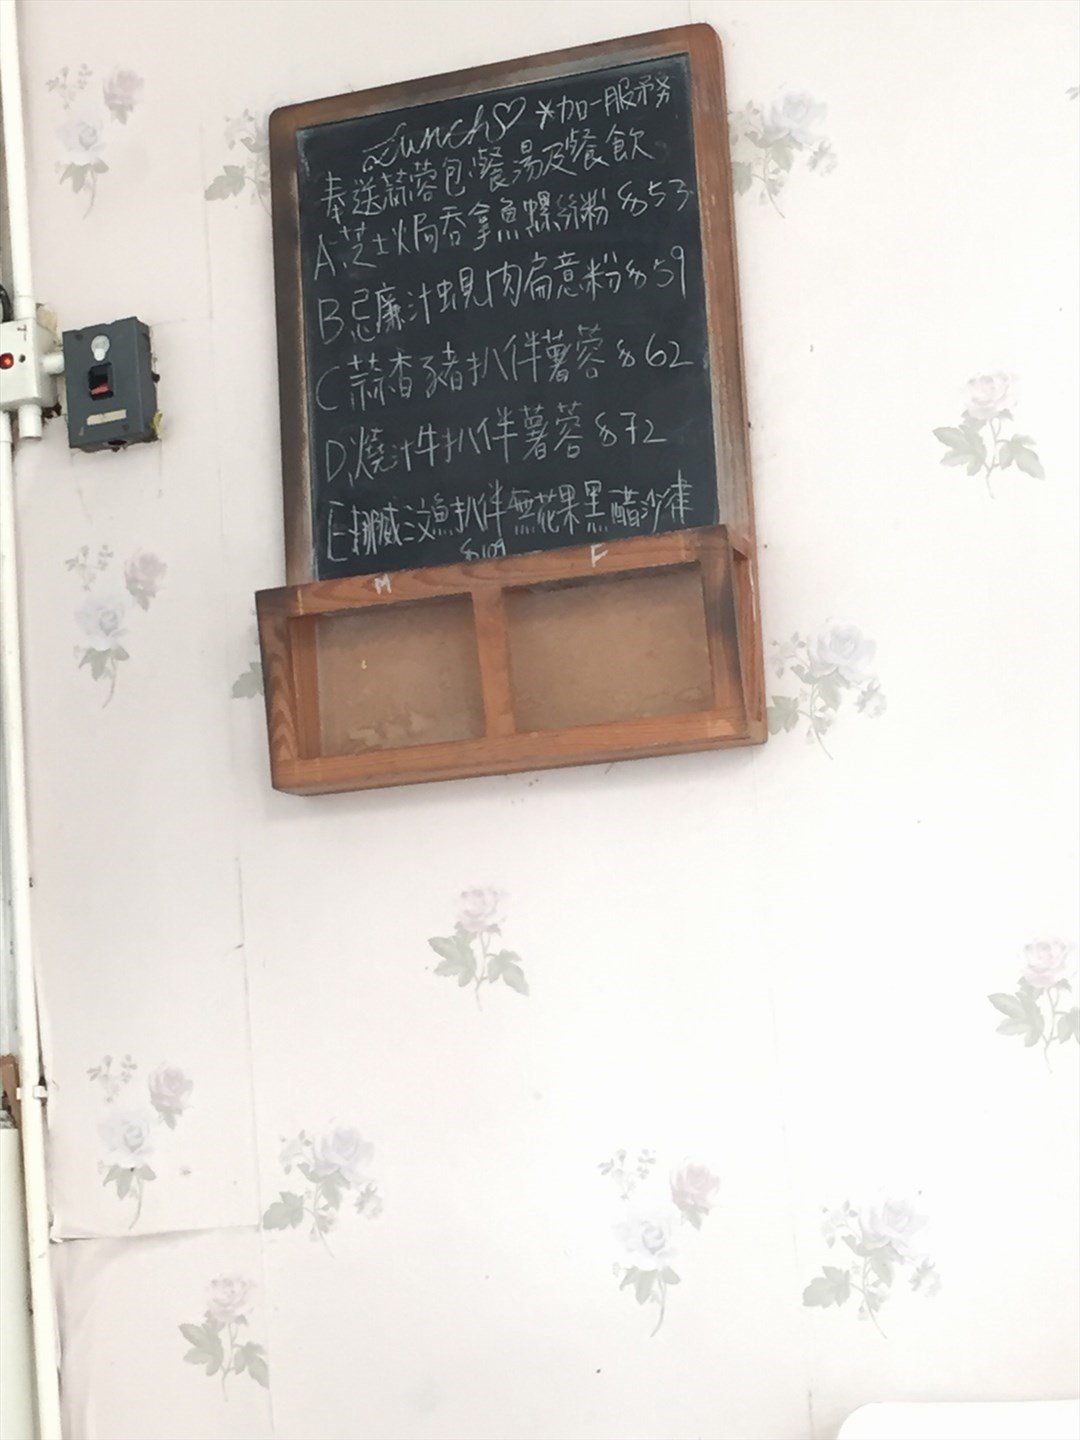 Lunch♡ *加一服務
奉送蒜蓉包,餐湯及餐飲
A.芝士焗吞拿魚螺絲粉 $53
B.忌廉汁蜆肉扁意粉 $59
C.蒜香豬扒伴薯蓉 $62
D.燒汁牛扒伴薯蓉 $72
E.挪威三文魚扒伴無花果黑醋沙律
$109
M F